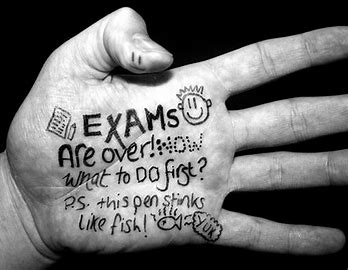 EXAMs
Are over! NOW
What to DO first?
P.S. this pen stinks
like fish!
YUK!